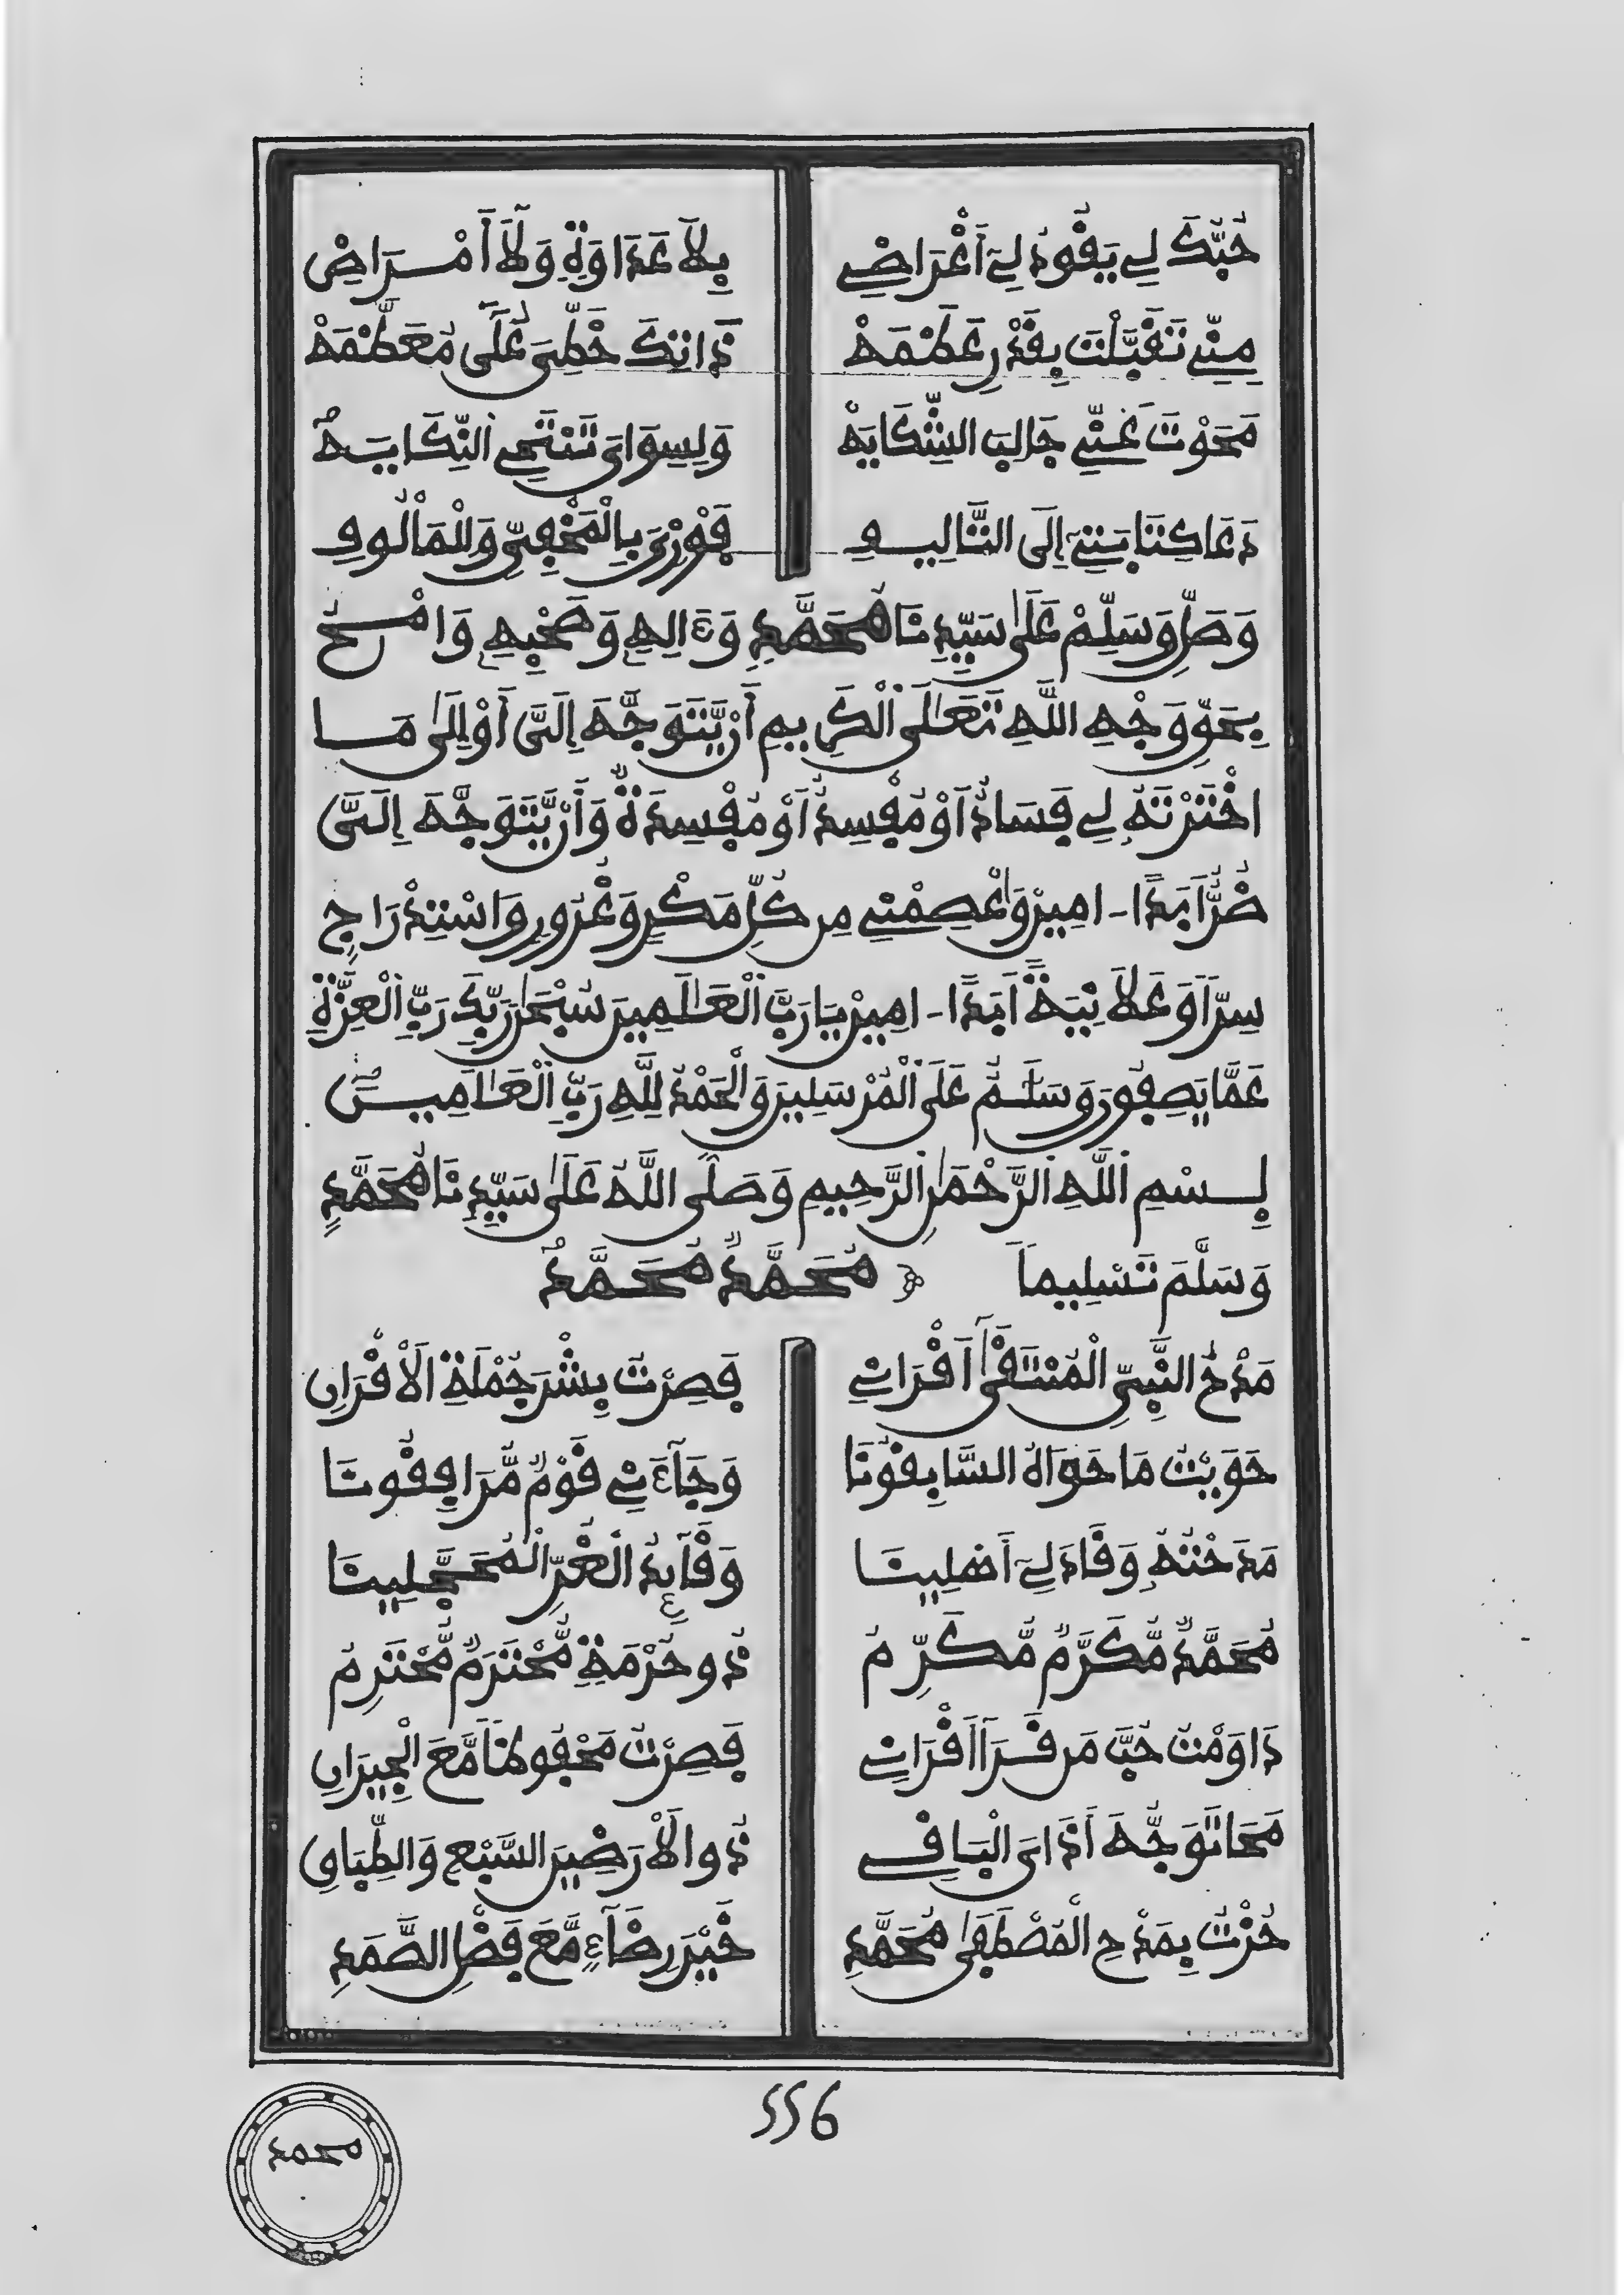 حُبُّكَ لِے يَقُودُ لِےَ أَغْرَاضِے بِلَا عَدَاوَةٍ وَلَا أَمْرَاضِ
مِنِّے تَقَبَّلْتَ بِقَدْرِ عَظَمَهْ ذَا انِكَ خَطِّىَ عَلَى مُعَظَّمَهْ
مَحَوْتَ عَنِّے جَالِبَ الشِّكَايَهْ وَلِسِوَاىَ تَنْتَحِے النِّكَايَهْ
دَعَا كِتَابَتِےَ إِلَى التَّالِيفِ فَوْزِىَ بِالْمَخْفِىِّ وَالْمَالُوفِ
وَصَلِّ وَسَلِّمْ عَلَى سَيِّدِنَا مُحَمَّدٍ وَءَالِهِ وَصَحْبِهِ وَامْحُ
بِحَقِّ وَجْهِ اللَّهِ تَعَلَى الْكَرِيمِ أَنْ يَّتَوَجَّهَ إِلَىَّ أَوْ إِلَى مَا
اخْتَرْتَهُ لِے فَسَادٌ أَوْ مُفْسِدٌ أَوْ مُفْسِدَةٌ وَأَنْ يَّتَوَجَّهَ إِلَىَّ
ضُرٌّ أَبَدًا - امِين وَاعْصِمْنِے مِن كُلِّ مَكْرٍ وَغُرُورٍ وَاسْتِدْرَاجٍ
سِرّاً وَعَلَانِيَةً أَبَدًا - امِين يَا رَبَّ الْعَالَمِينَ سُبْحَنَ رَبِّكَ رَبِّ الْعِزَّةِ
عَمَّا يَصِفُونَ وَسَلَمٌ عَلَى الْمُرْسَلِينَ وَالْحَمْدُ لِلَّهِ رَبِّ الْعَالَمِينَ
بِسْمِ اللَّهِ الرَّحْمَنِ الرَّحِيمِ وَصَلَّى اللَّهُ عَلَى سَيِّدِنَا مُحَمَّدٍ
وَسَلَّمَ تَسْلِيماً مُحَمَّدٌ مُحَمَّدٌ
مَدْحُ النَّبِىِّ الْمُنْتَقَى أَقْرَانِے فَصِرْتُ بِشْرَ جُمْلَةِ الْأَقْرَانِ
حَوَيْتُ مَا حَوَاهُ السَّابِقُونَا وَجَاءَنِے قَوْمٌ مُّرَافِقُونَا
مَدَحْتُهُ وَقَادَ لِےَ أَهْلِينَا وَقَائِدُ الْغُرِّ الْمُحَجَّلِينَا
مُحَمَّدٌ مُّكَرَّمٌ مُّكَرِّمُ ذُو حُرْمَةٍ مُّحْتَرَمٌ مُّحْتَرِمُ
دَاوَمْتُ حُبَّ مَن قَرَا أَقْرَانِے فَصِرْتُ مَحْفُوظًا مَّعَ الْجِيرَانِ
مَحَا تَوَجُّهَ أَذَاىَ الْبَاقِے ذُو الْأَرَضِينَ السَّبْعِ وَالطِّبَاقِ
حُزْتُ بِمَدْحِ الْمُصْطَفَى مُحَمَّدِ خَيْرَ رِضَاءٍ مَّعَ فَضْلِ الصَّمَدِ
556
محمد